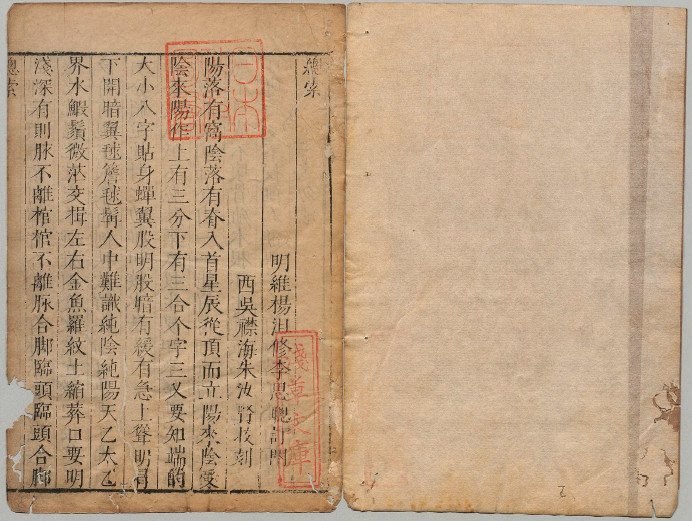 總索
明維楊沮修李思聰訂門
西吳襟海朱汝賢校刻
陽落有窩陰落有脊入首星辰從頂而立陽來陰受
陰來陽作上有三分下有三合个字三叉要知端的
大小八字貼身蟬翼股明股暗有緩有急上聳明肩
下開暗翼毬簷毬髯人中難識純陰純陽天乙太乙
界水鰕鬚微茫交揖左右金魚羅紋土縮葬口要明
淺深有則脉不離棺棺不離脉合脚臨頭臨頭合脚
總索
淺草文庫